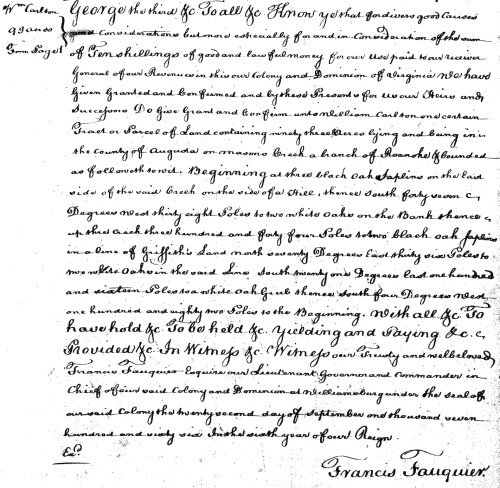 Wm Carlton
93 acres
George the third &c To all &c Know ye that for divers good Causes
and Considerations but more especially for and in Consideration of the sum
of Ten shillings of good and lawful money for our Use paid to our receiver
General of our Revenues in this our Colony and Dominion of Virginia We have
Given Granted and Confirmed and by these Presents for us our Heirs and
Successors Do Give Grant and Confirm unto William Carlton one certain
Tract or Parcel of Land containing ninety three Acres lying and being in
the County of Augusta on masons Creek a branch of Roanoke & bounded
as followeth to wit, Beginning at three black Oak Saplins on the
side of the said Creek on the side of a Hill, thence South forty seven
Degrees West thirty eight Poles to two white Oaks on the Bank thence
up the Creek three hundred and forty four Poles to two black oak saplins
in a line of Griffith's Land north seventy Degrees East thirty six Poles to
two white Oaks in the said Line South twenty one Degrees East one hundred
and sixteen Poles to a white Oak Grub thence South four Degrees West
one hundred and eighty two Poles to the Beginning. With all &c To
have hold &c To be held &c Yielding and Paying &c.
Provided &c In Witness &c Witness our Trusty and wellbeloved
Francis Fauquier Esquire our Lieutenant Governor and Commander in
Chief of our said Colony and Dominion at Williamsburg under the seal of
our said Colony the twenty second day of September one thousand seven
hundred and sixty six In the sixth year of our Reign.
Francis Fauquier